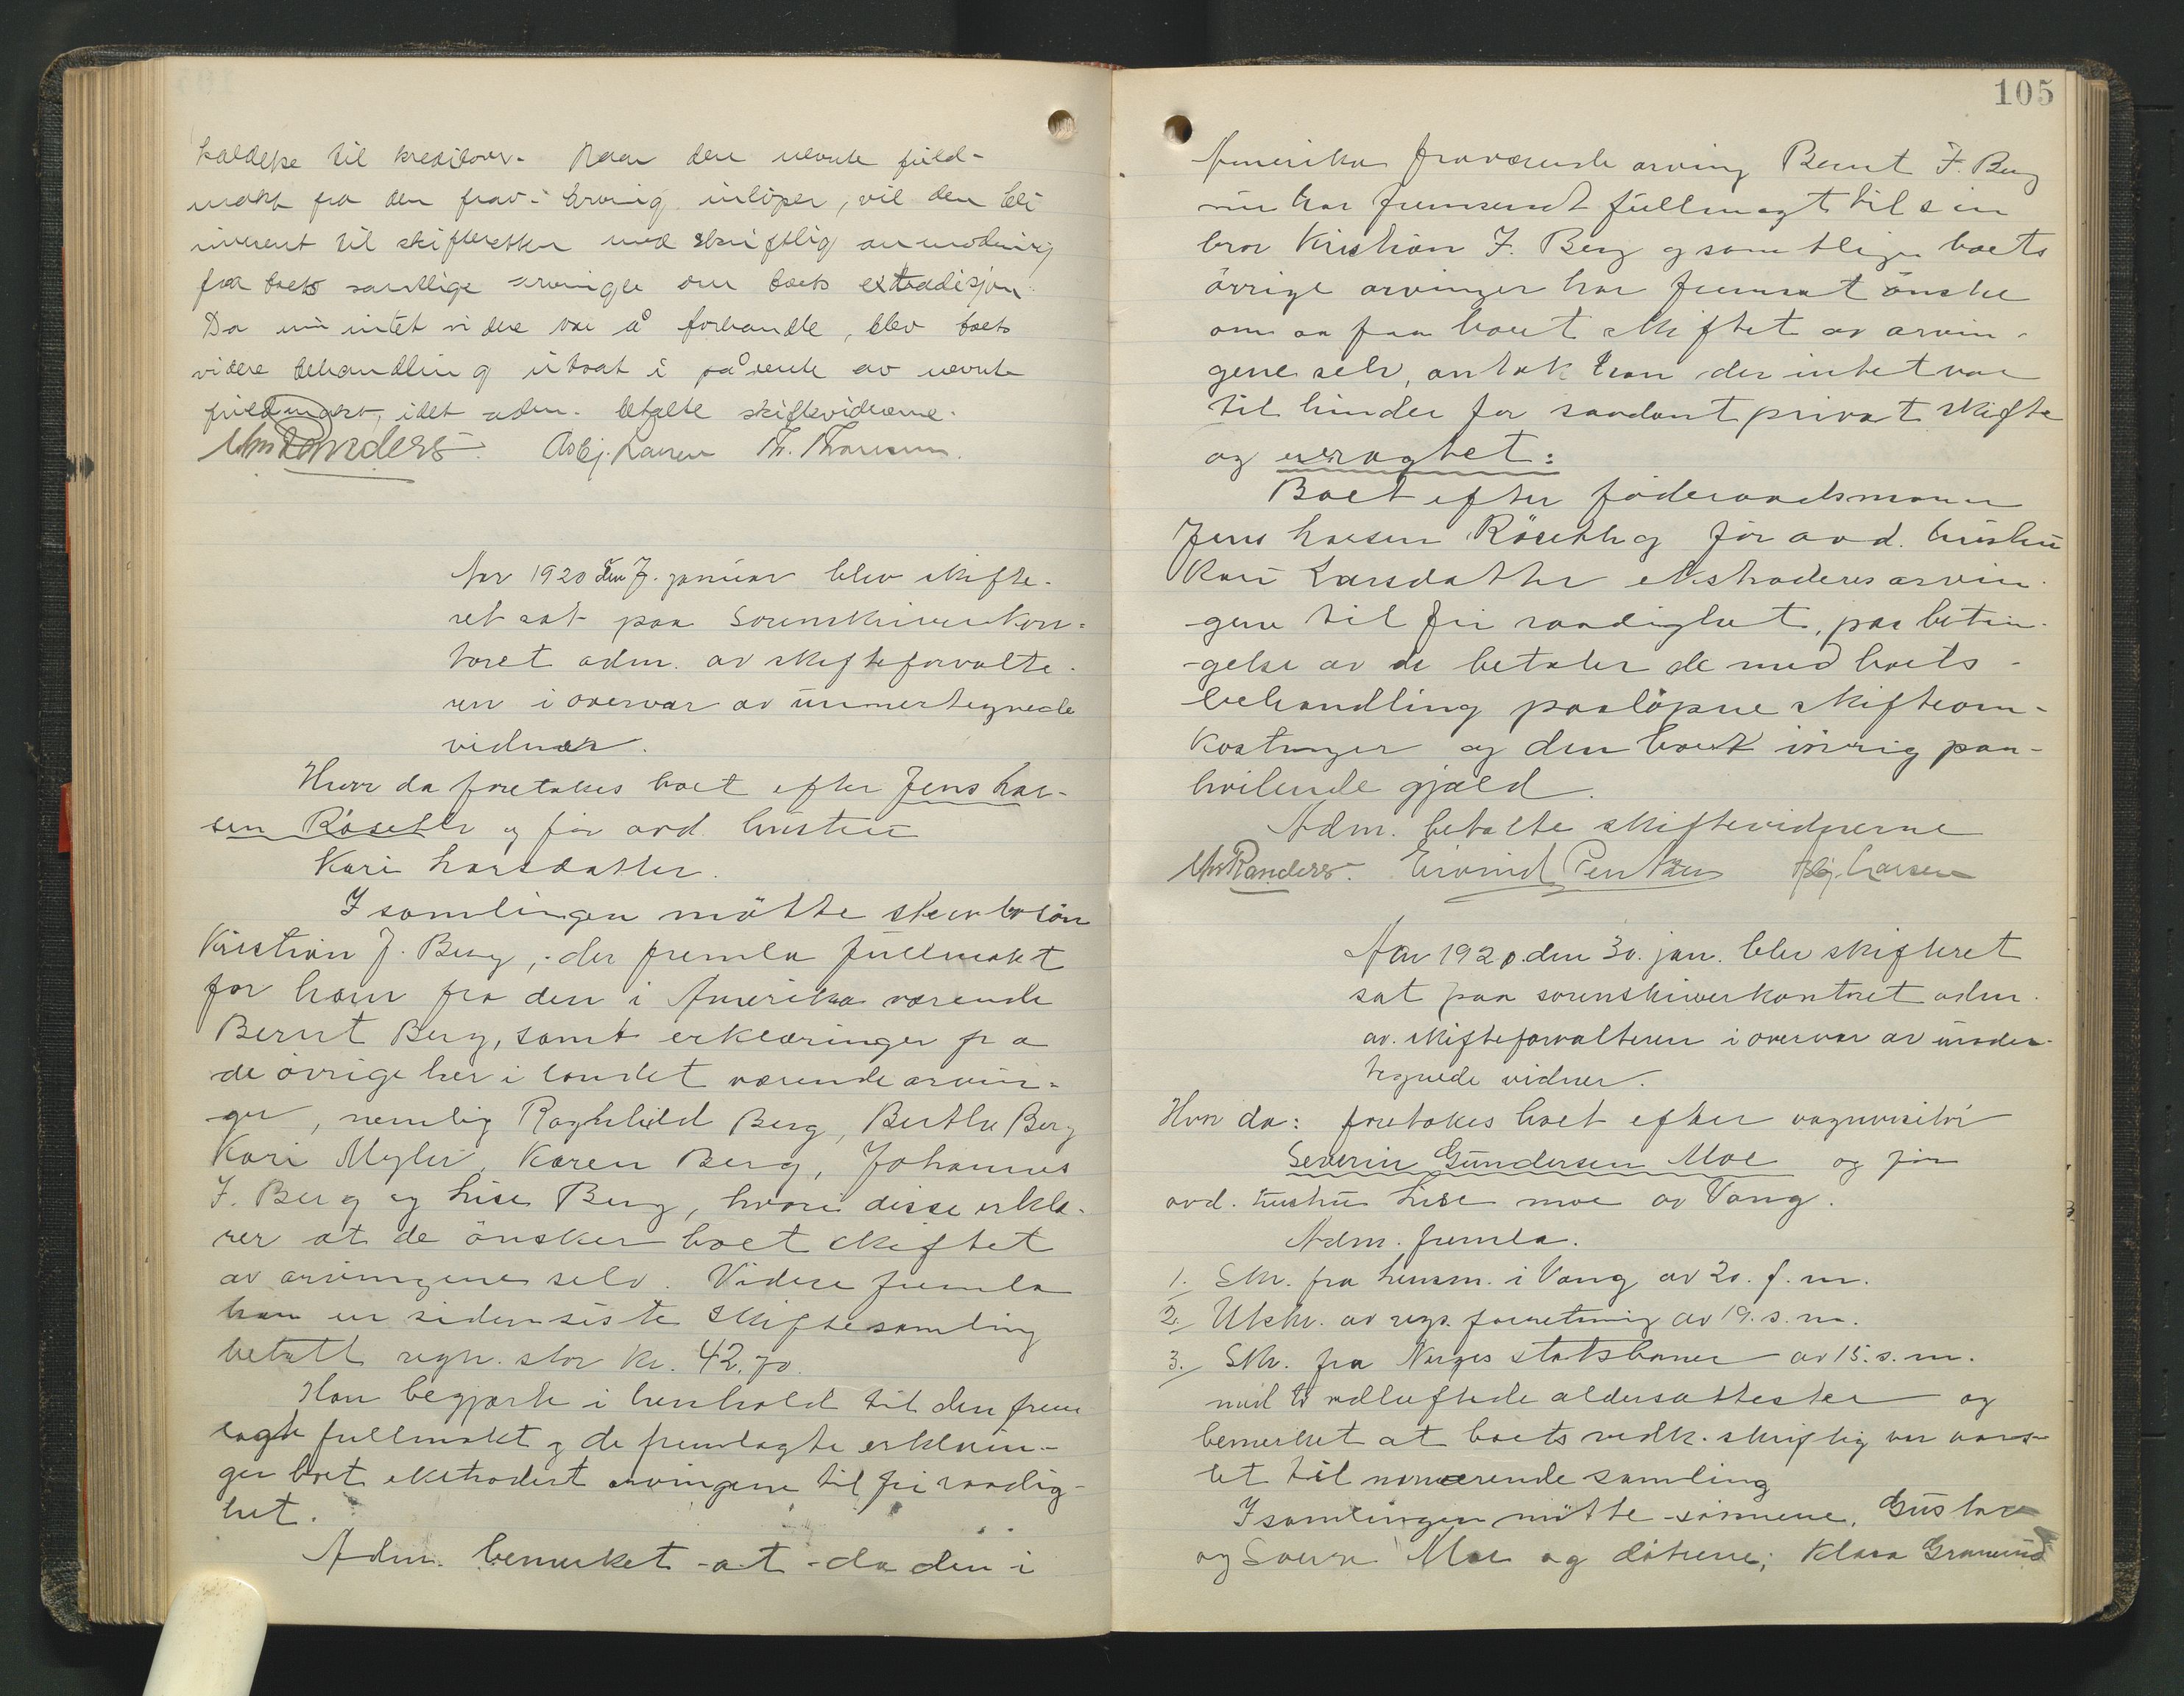 kaldelse til kreditorer. Naar den nevnte fuld-
makt fra den frav. arving inløper, vil den bli
innsent til skifteretten med skriftlig anmodning
fra boets samtlige arvinger om boets extradisjon.
Da nu intet videre var å forhandle, blev boets
videre behandling utsat i påvente av nevnte
fuldmakt, idet adm. betalte skiftevidnerne.
Chr Randers. Asbj. Larsen Th. Thoresen.
Aar 1920 den 7. januar blev skifte-
ret sat paa sorenskriverkon-
toret adm. av skifteforvalte-
ren i overvær av unnertegnede
vidner.
Hvor da foretakes boet efter Jens Lar-
sen Röseth og før avd. hustru
Kari Larsdatter.
I samlingen møtte stervboson
Kristian J. Berg, der fremla fullmakt
for ham fra den i Amerika værende
Bernt Berg, samt erklæringer fra
de övrige her i landet værende arvin-
ger, nemlig Raghild Berg, Berthe Berg
Kari Myhr, Karen Berg, Johannes
J. Berg og Lise Berg, hvori disse erklæ-
rer at de önsker boet skiftet
av arvingene selv. Videre fremla
han en siden siste skiftesamling
betalt regn. stor kr. 42.70.
Han begjærte i henhold til den frem
lagte fullmakt og de fremlagte erklærin-
ger boet ekstradert arvingene til fri raadig-
het.
Adm. bemerket at da den i
105
Amerika fraværende arving Bernt J. Berg
nu har fremsendt fullmagt til sin
bror Kristian J. Berg og samtlige boets
övrige arvinger har fremsat önske
om aa faa boet skiftet av arvin-
gene selv, antok han der intet var
til hinder for saadant privat skifte
og eragtet:
Boet efter föderaadsmann
Jens Larsen Röseth og før avd. hustru
Kari Larsdatter ekstraderes arvin-
gene til fri raadighet, paa betin-
gelse av de betaler de med boets
behandling paaløpne skifteom-
kostninger og den boet iövrig paa-
hvilende gjæld.
Adm. betalte skiftevidnerne
Chr Randers. Eivind Asbj. Larsen
Aar 1920 den 30. jan. blev skifteret
sat paa sorenskriverkontoret adm.
av. skifteforvalteren i overvær av under-
tegnede vidner.
Hvor da: foretakes boet efter vognvisitör
Severin Gundersen Moe og før
avd. hustru Lise Moe av Vang.
Adm. fremla.
1. Skr. fra lensm. i Vang av 20. f. m.
2. Utskr. av regs. forretning av 19. s. m.
3. Skr. fra Norges statsbaner av 15. s. m.
med to vedheftede aldersattester og
bemerket at boets vedk. skriftlig er vars-
let til nærværende samling
I samlingen møtte sönnene, Gustav
og Moe og døtrene; Klara Granerud